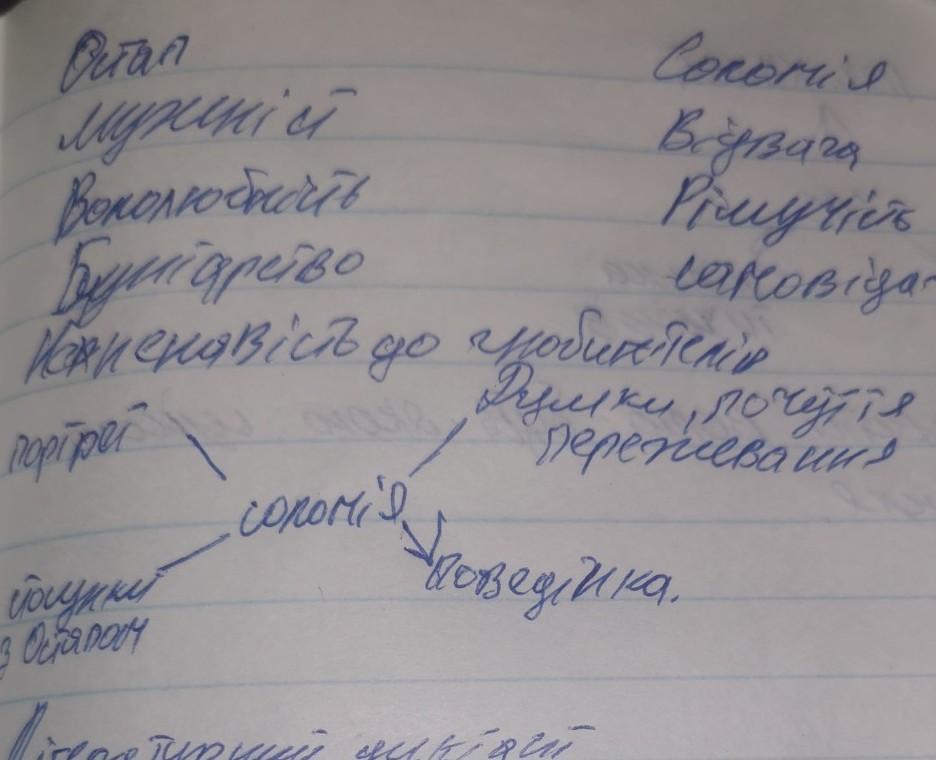 Остап Соломія
мужність Відвага
Волелюбність Рішучість
Бунтарство самовідда-
Ненависть до гнобителів
Думки, почуття
портрет переживання
соломія
Поведінка.
стосунки
з Остапом
Літературний диктант